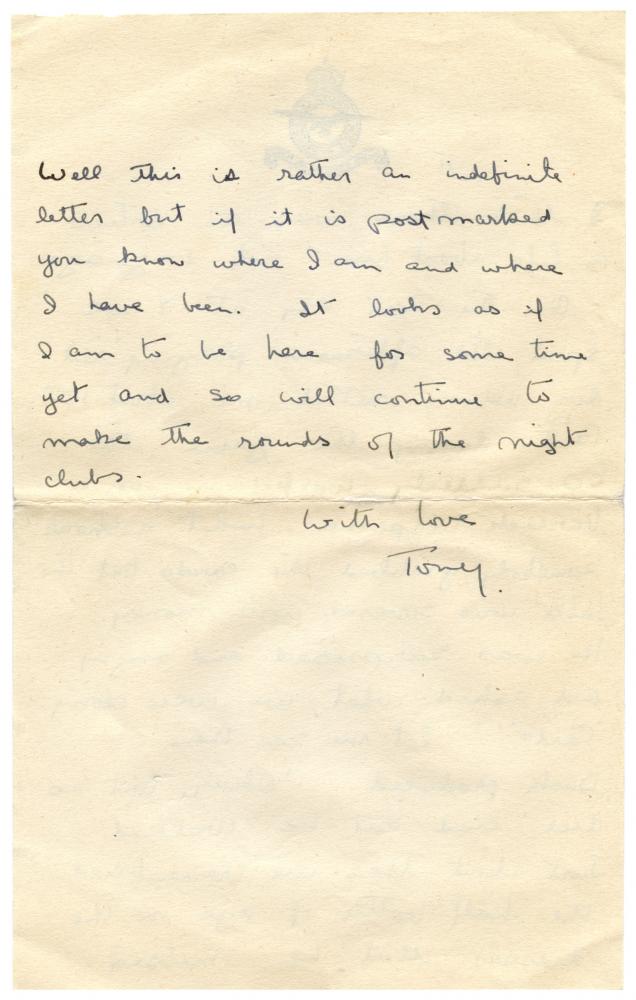 Well this is rather an indefinite
letter but if it is post marked
you know where I am and where
I have been. It looks as if
I am to be here for some time
yet and so will continue to
make the rounds of the night
clubs.
With love
Toney.